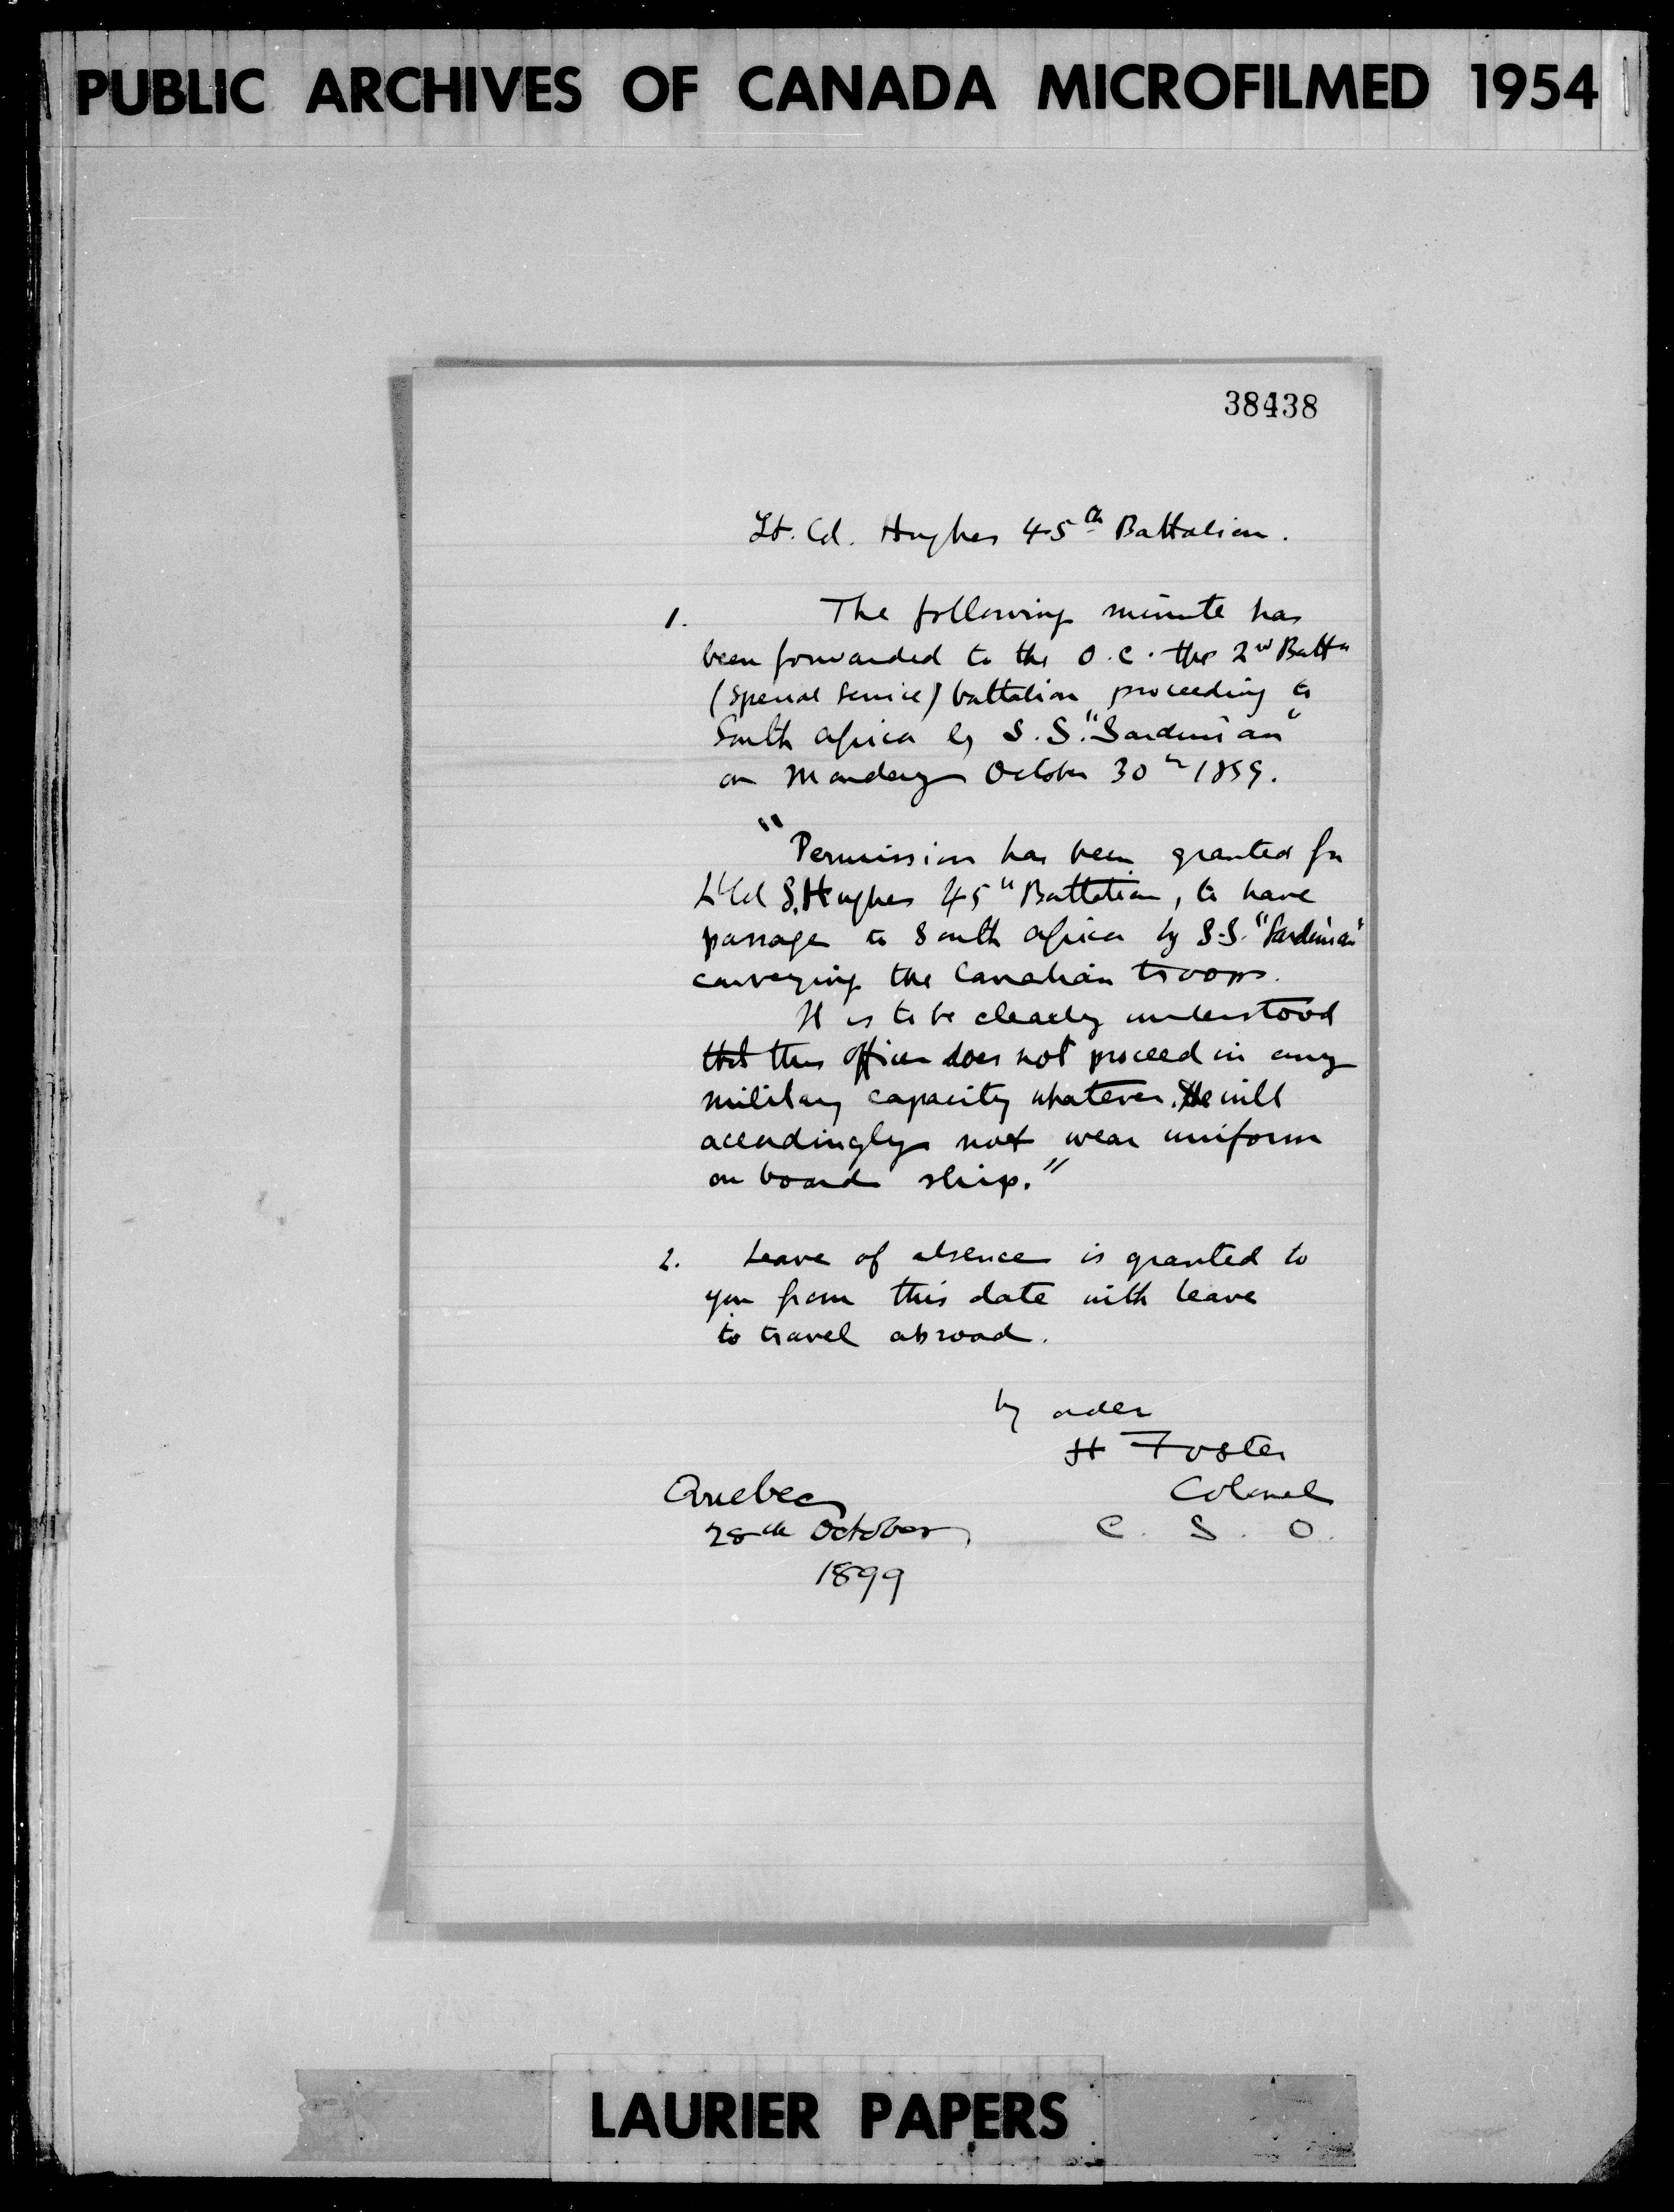 PUBLIC ARCHIVES OF CANADA MICROFILMED 1954
38438
Lt. Col. Hughes 45th Battalion.
1. The following minute has
been forwarded to the O.C. the 2nd Battn
(Special Service) battalion proceeding to
South Africa by S.S. "Sardinian"
on Monday October 30th 1899.
"Permission has been granted for
Lt Col S. Hughes 45th Battalion, to have
passage to South Africa by S.S. "Sardinian"
conveying the Canadian troops.
It is to be clearly understood
that this officer does not proceed in any
military capacity whatever. He will
accordingly not wear uniform
on board ship."
2. Leave of absence is granted to
you from this date with leave
to travel abroad.
by order
H Foster
Quebec Colonel
28th October, C. S. O.
1899
LAURIER PAPERS